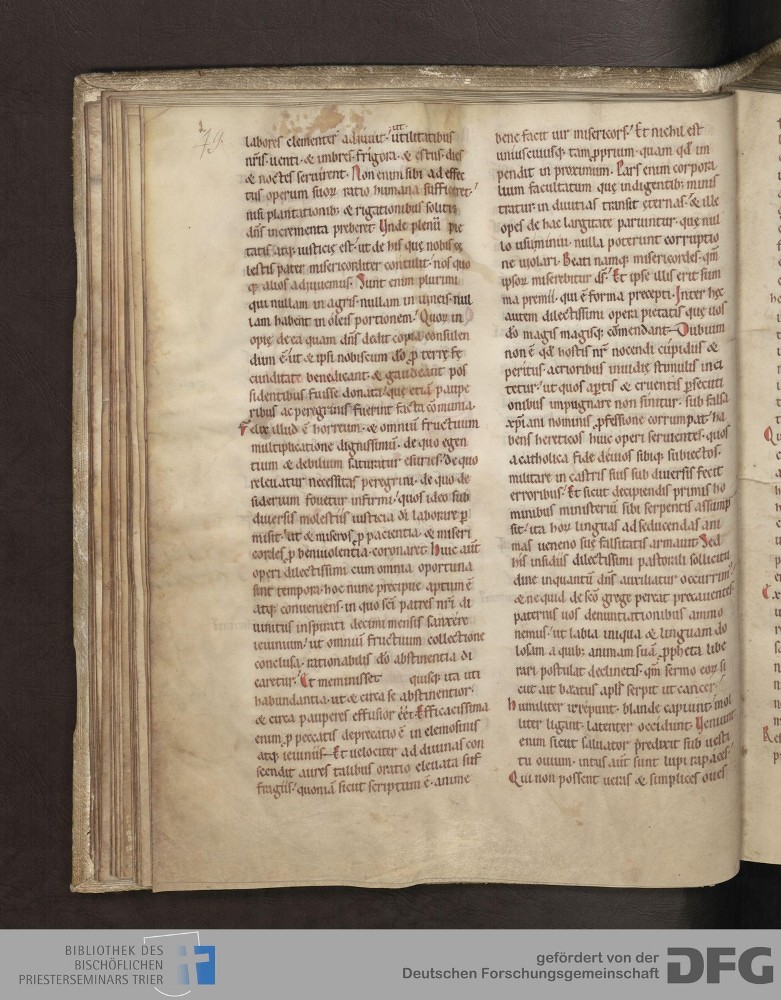 79.
labores clementer adiuuit. ut utilitatibus
nr̄is uenti. & imbres frigora. & estus dies
& noctes seruirent. Non enim sibi ad effec
tus operum suoꝝ ratio humana sufficeret.
nisi plantationib; & rigationibus solitis
dn̄s incrementa preberet. Unde plenū pie
tatis atq; iusticie est. ut de his que nobis cę
lestis pater misericorditer contulit. nos quo
q; alios adiuuemus. Sunt enim plurimi
qui nullam in agris. nullam in uineis. nul
lam habent in oleis portionem. Quoꝝ in
opię de ea quam dn̄s dedit copia consulen
dum ē. ut & ipsi nobiscum dō ꝓ terrę fę
cunditate benedicant. & gaudeant pos
sidentibus fuisse donata. que etiā paupe
ribus ac peregrinis fuerint facta cōmunia.
Felix illud ē horreum. & omniū fructuum
multiplicatione dignissimū. de quo egen
tium & debilium saturatur esuries. de quo
releuatur necessitas peregrini. de quo de
siderium fouetur infirmi. quos ideo sub
diuersis molestiis iusticia dī laborare ꝑ
misit. ut & miseros ꝓ pacientia. & miseri
cordes ꝓ beniuolentia coronaret. Huic aūt
operi dilectissimi cum omnia oportuna
sint tempora. hoc nunc precipue aptum ē
atq; conueniens. in quo sc̄i patres nr̄i di
uinitus inspirati decimi mensis sanxere
ieiunium. ut omniū fructuum collectione
conclusa. rationabilis dō abstinentia di
caretur. Et meminisset quisq; ita uti
habundantia. ut & circa se abstinentior.
& circa pauperes effusior eēt. Efficacissima
enim ꝓ peccatis deprecatio ē in elemosinis
atq; ieiuniis. Et uelociter ad diuinas con
scendit aures talibus oratio eleuata suf
fragiis. quoniā sicut scriptum ē. anime
bene facit uir misericors. Et nichil est
uniuscuiusq; tam ꝓprium. quam qđ im
pendit in proximum. Pars enim corpora
lium facultatum que indigentib; minis
tratur. in diuitias transit ęternas. & ille
opes de hac largitate pariuntur. que nul
lo usu minui. nulla poterunt corruptio
ne uiolari. Beati namq; misericordes. qm̄
ipsoꝝ miserebitur dς̄. Et ipse illis erit sum
ma premii. qui ē forma precepti. Inter hęc
autem dilectissimi opera pietatis que uos
dō magis magisq; cōmendant. Dubium
non ē qđ hostis nr̄ nocendi cupidus &
peritus. acrioribus inuidię stimulis inci
tetur. ut quos aꝑtis & cruentis ꝑsecuti
onibus impugnare non sinitur. sub falsa
xp̄iani nominis ꝓfessione corrumpat. ha
bens hereticos huic operi seruientes. quos
a catholica fide deuios sibiq; subiectos.
militare in castris suis sub diuersis fecit
erroribus. Et sicut decipiendis primis ho
minibus ministeriū sibi serpentis assump
sit. ita hoꝝ linguas ad seducendas ani
mas ueneno sue falsitatis armauit. Sed
his insidiis dilectissimi pastorali sollicitu
dine inquantū dn̄s auxiliatur occurrim᷒.
& ne quid de sc̄o grege pereat precauentes
paternis uos denuntiationibus ammo
nemus. ut labia iniqua & linguam do
losam a quib; animam suā ꝓpheta libe
rari postulat declinetis. qm̄ sermo eoꝝ si
cut ait beatus apl̄s serpit ut cancer.
Humiliter irrepunt. blande capiunt. mol
liter ligant. latenter occidunt. Ueniunt
enim sicut saluator predixit sub uesti
tu ouium. intus aūt sunt lupi rapaces.
Qui non possent ueras & simplices oues
BIBLIOTHEK DES
BISCHÖFLICHEN
PRIESTERSEMINARS TRIER
gefördert von der
Deutschen Forschungsgemeinschaft
DFG